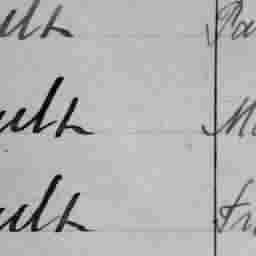 ult Pa
ult M
ult Fr